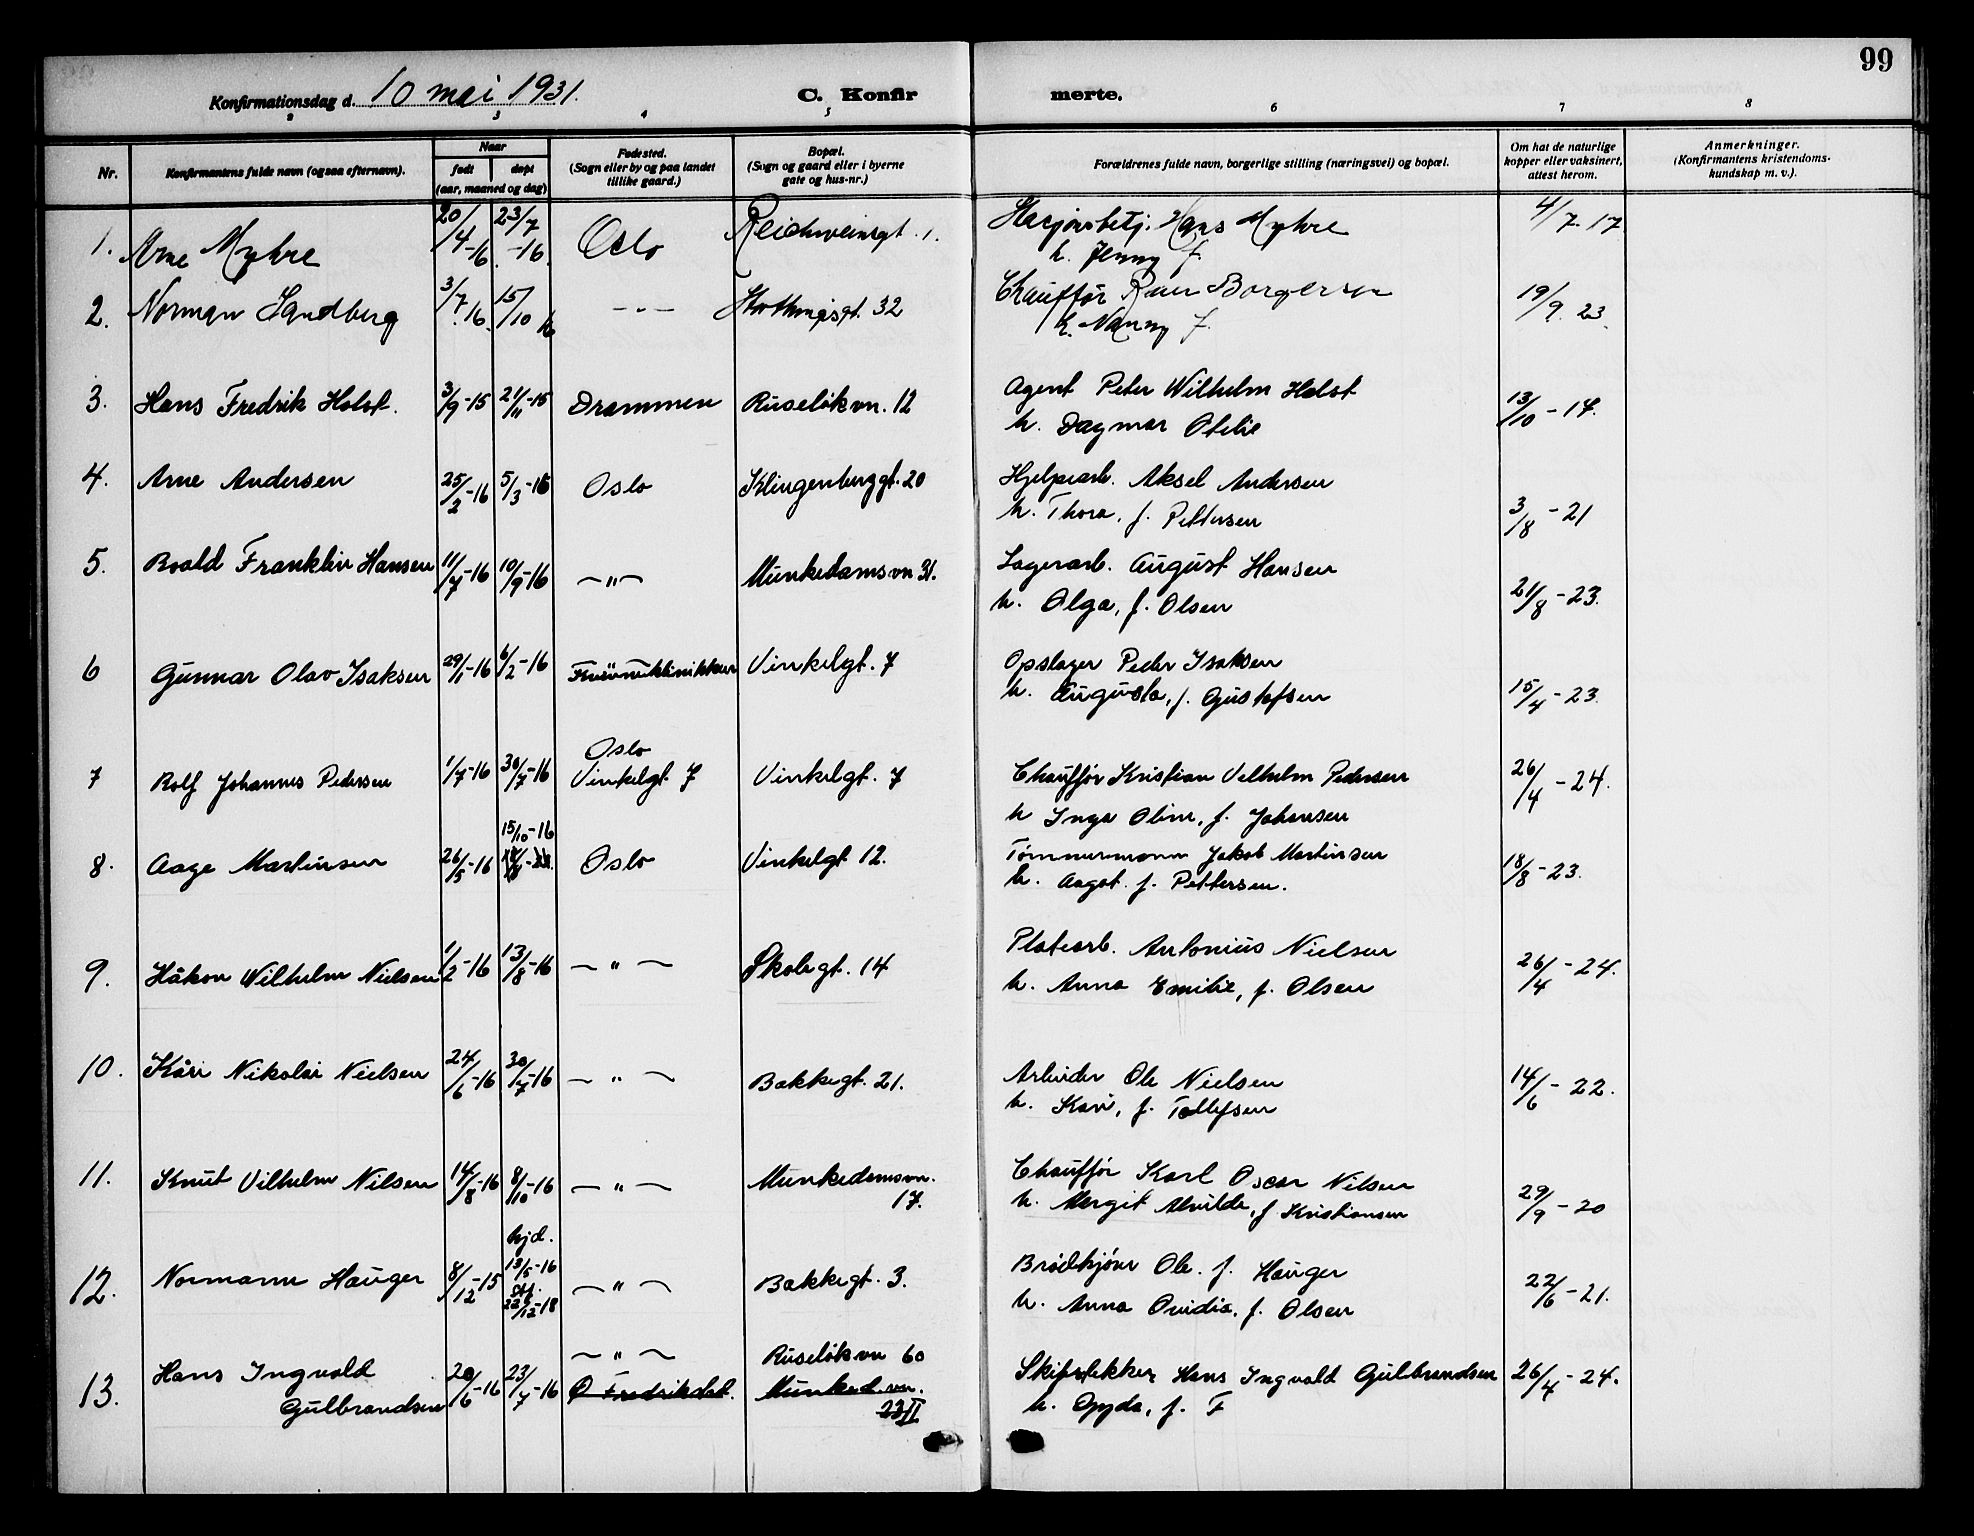 99
Konfirmationsdag d. 10 mai 1931. C. Konfirmerte.
2 3 4 5 6 7 8
Nr. Konfirmantens fulde navn (ogsaa efternavn). Naar født døpt (aar, maaned og dag) Fødested. (Sogn eller by og paa landet tillike gaard.) Bopæl. (Sogn og gaard eller i byerne gate og hus-nr.) Forældrenes fulde navn, borgerlige stilling (næringsvei) og bopæl. Om hat de naturlige kopper eller vaksinert, attest herom. Anmerkninger. (Konfirmantens kristendomskundskap m. v.).
1. Arne Myhre 20/4-16. 23/7-16. Oslo Reichweinsgt. 1. Hans Myhre 4/7-17
h. Jenny f.
2. Norman Sandberg 3/7.16. 15/10 16 -"- 32 Chauffør Borgersen 19/9. 23.
h. Nanny f.
3. Hans Fredrik Holst. 3/9-15 21/11-15 Drammen Ruseløkvn. 12 Agent Peter Wilhelm Holst 13/10-17.
h. Dagmar Otelie
4. Arne Andersen 25/2-16 5/3-16 Oslo Klingenberggt. 20 Hjelpearb. Aksel Andersen 3/8-21
h. Thora, f. Pettersen
5. Roald Franklin Hansen 11/7-16 10/9-16 -"- Munkedamsvn 31. Lagerarb. August Hansen 21/8-23.
h. Olga, f. Olsen
6 Gunnar Olav Isaksen 29/1-16 6/2-16 Kvinneklinikken Vinkelgt. 7 Opslager Peder Isaksen 15/4-23.
h. Augusta, f. Gustafsen
7 Rolf Johannes Pedersen 1/7-16 30/7-16 Oslo Vinkelgt. 7 Vinkelgt. 7 Chauffør Kristian Vilhelm Pedersen 26/4-24.
h Inga Oline, f. Johansen
8. Aage Martinsen 26/5-16 15/10-16 Oslo Vinkelgt 12. Tømmermann Jakob Martinsen 18/8-23.
h. Aagot. f. Pettersen.
9. Håkon Wilhelm Nielsen 1/2-16 13/8-16 -"- Skolegt. 14 Platearb. Antonius Nielsen 26/4-24.
h. Anna Emilie, f. Olsen
10. Kåre Nikolai Nielsen 24/6-16 30/7-16 -"- Bakkegt. 21. Arbeider Ole Nielsen 14/6-22.
h. Kari, f. Tollefsen
11. Knut Vilhelm Nilsen 14/8-16 8/10-16 -"- Munkedamsvn. 17. Chauffør Karl Oscar Nilsen 29/9-20
h. Margit Alvilde, f Kristiansen
12. Normann Hauger 8/12-15 hjd. 13/5-16 Stf. 22/12-18 -"- Bakkegt. 3. Brødkjører Ole. f. Hauger 22/6-21.
h. Anna Ovidia. f. Olsen
13. Hans Ingvald Gulbrandsen 20/6-16 23/7-16 -"- Ø Fredrikstad. Ruseløkvn 60 Munked.vn. 23 II Skipsdekker Hans Ingvald Gulbrandsen 26/4-24.
h. Gyda, f. F